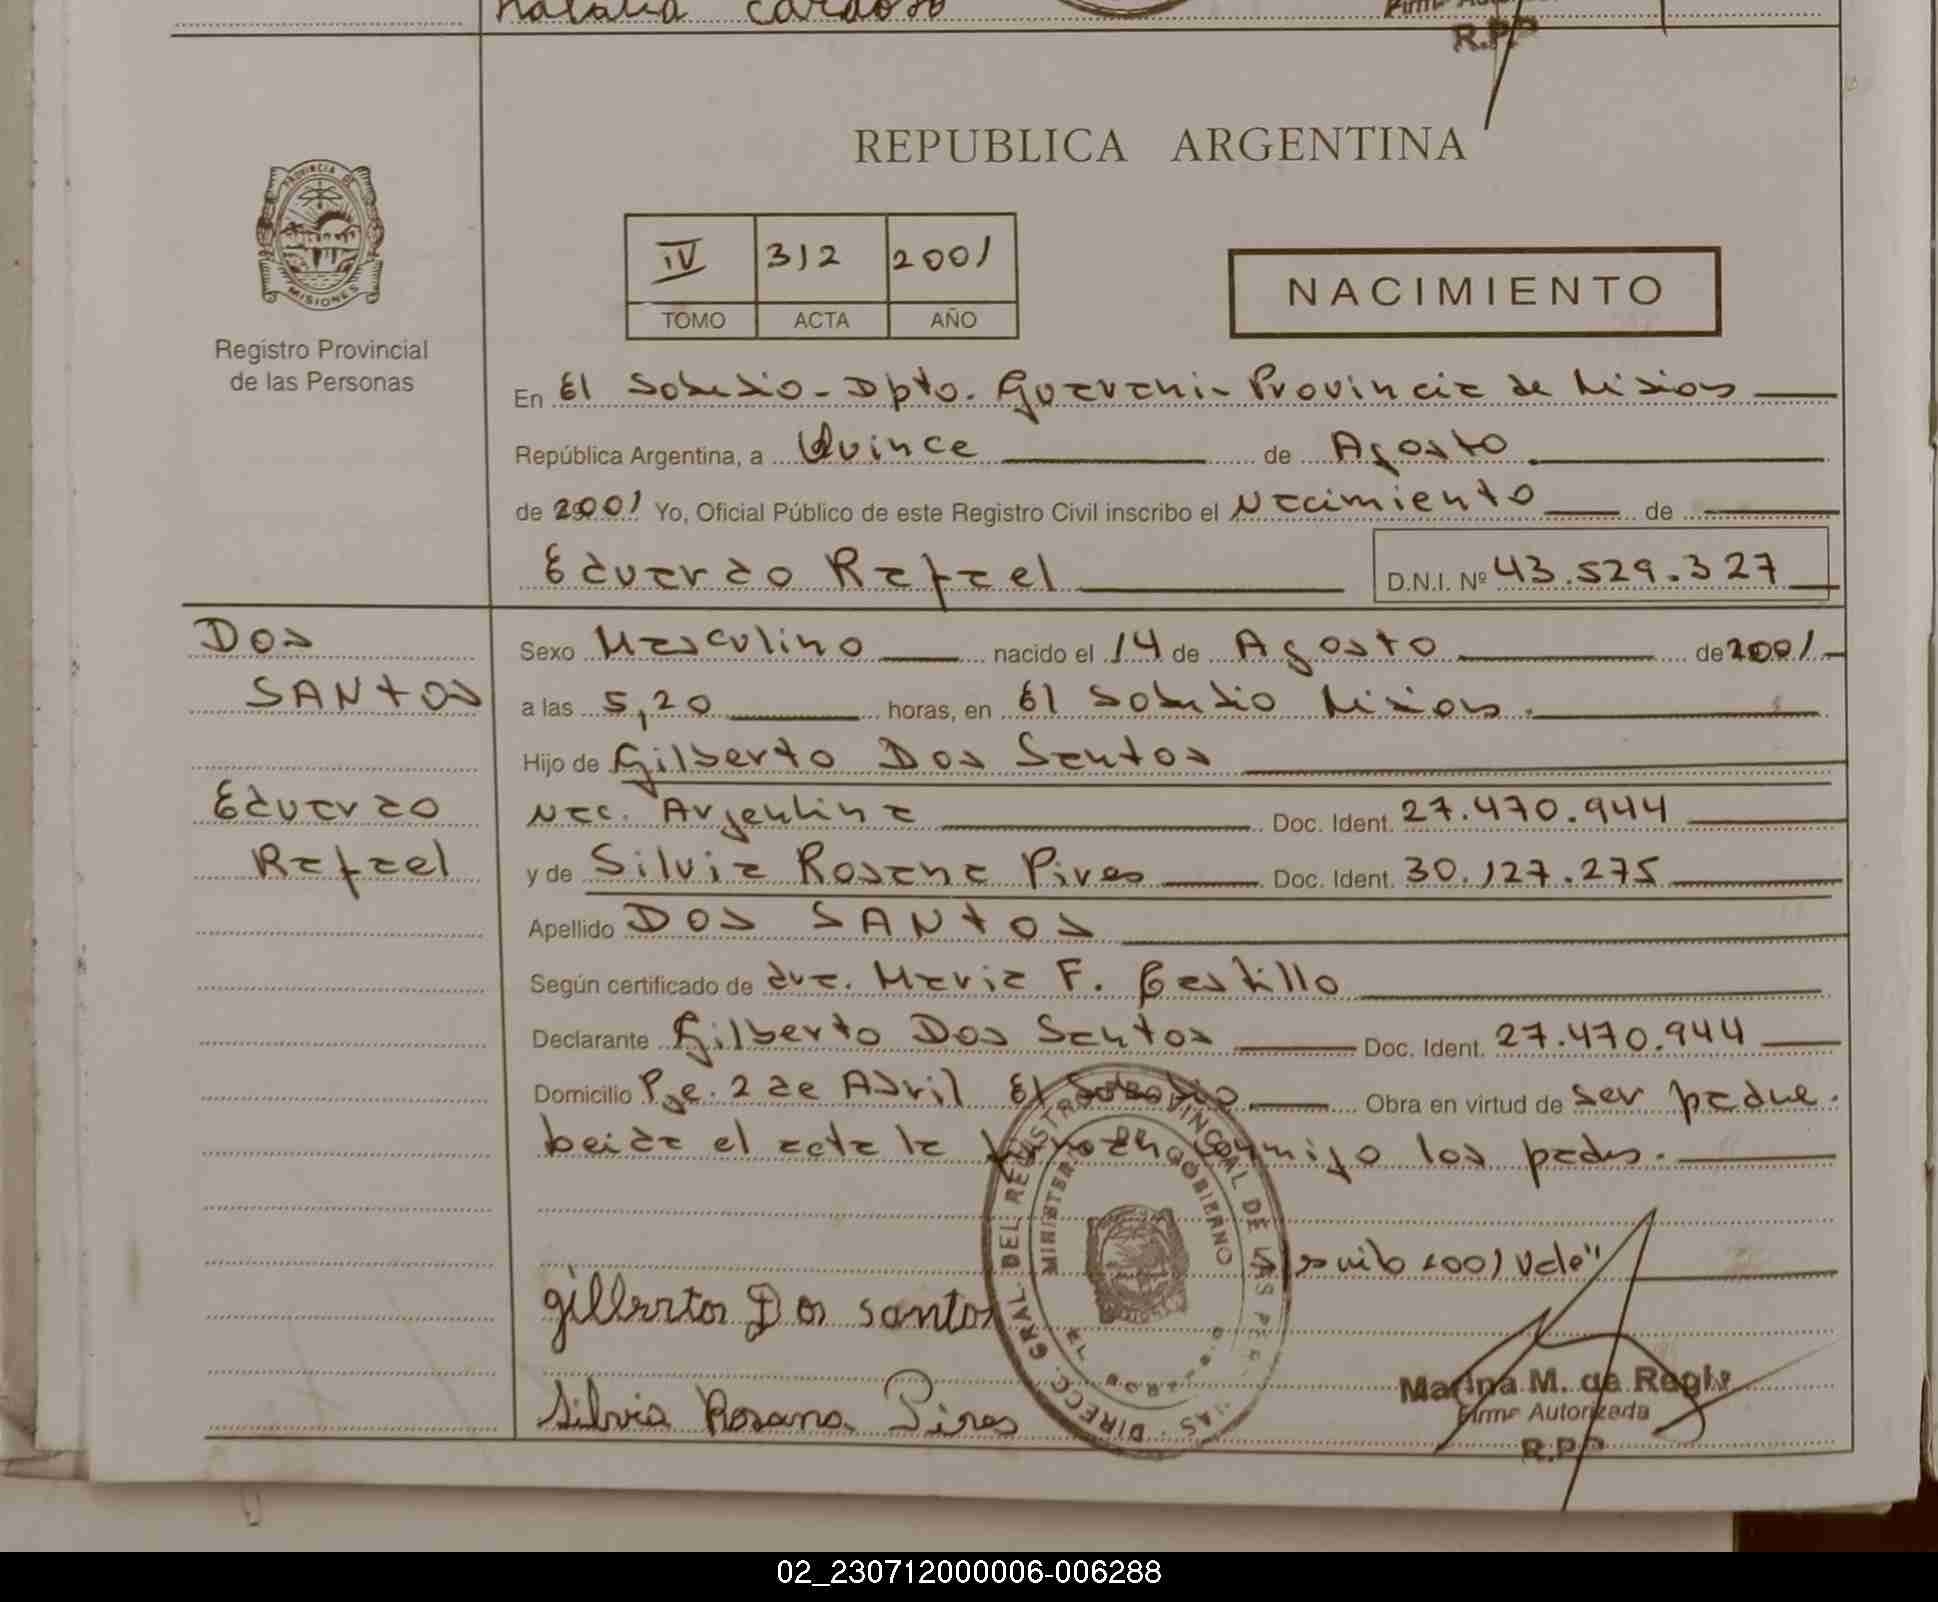 Natalia Cardozo
Firma
R.P.P
REPUBLICA ARGENTINA
PROVINCIA DE
MISIONES
Registro Provincial
de las Personas
IV 312 2001
TOMO ACTA AÑO
NACIMIENTO
En El Soberbio - Dpto. Guarani - Provincia de Misiones
República Argentina, a Quince de Agosto
de 2001 Yo, Oficial Público de este Registro Civil inscribo el Nacimiento de
Eduardo Rafael D.N.I. Nº 43.529.327
DOS
SANTOS
Eduardo
Rafael
Sexo Masculino nacido el 14 de Agosto de 2001
a las 5,20 horas, en El Soberbio Misiones.
Hijo de Gilberto Dos Santos
Nac. Argentina Doc. Ident. 27.470.944
y de Silvia Rosana Pires Doc. Ident. 30.127.275
Apellido DOS SANTOS
Según certificado de dra. Maria F. Castillo
Declarante Gilberto Dos Santos Doc. Ident. 27.470.944
Domicilio Pje. 2 de Abril El Soberbio Obra en virtud de ser padre.
Leida el acta la firman conmigo los padres.
2001 Vale"
gilberto Dos santos
Silvia Rosana Pires
DIRECC. GRAL. DEL REGISTRO PROVINCIAL DE LAS PER
MINISTER GOBIERNO
Marina M. de Regis
Firma Autorizada
R.P.P
02_230712000006-006288